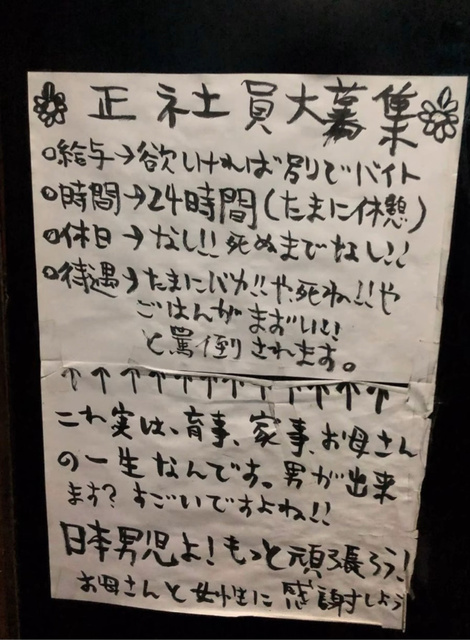 正社員大募集
○給与→欲しければ別でバイト
○時間→24時間(たまに休憩)
○休日→なし!!死ぬまでなし!!
○待遇→たまにバカ!!や、死ね!!や
ごはんがまずい!!
と罵倒されます。
↑↑↑↑↑↑↑↑↑↑↑↑
これ実は、育事、家事、お母さん
の一生なんです。男が出来
ます?すごいですよね!!
日本男児よ!もっと頑張ろう!
お母さんと女性に感謝しよう